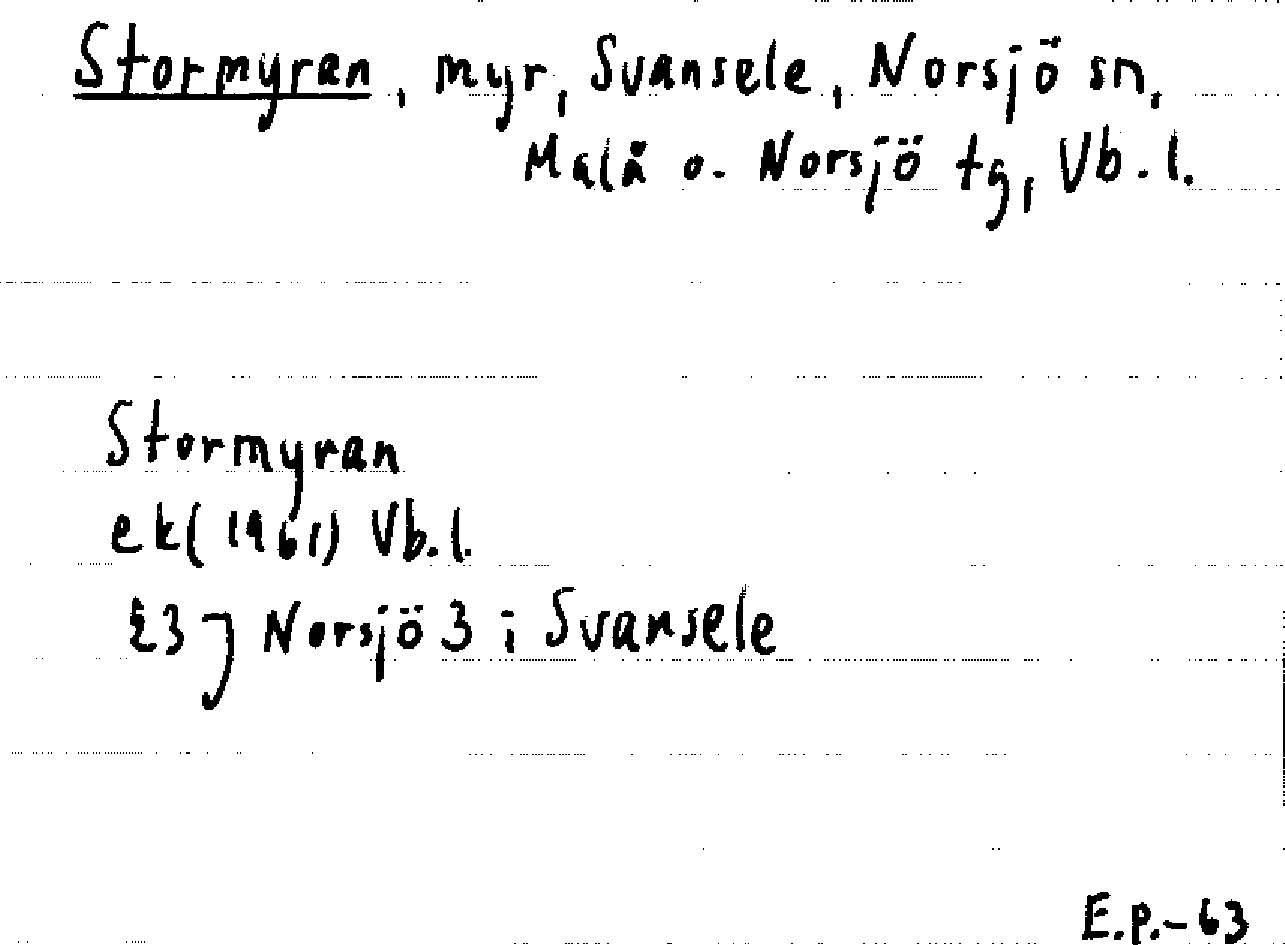 Stormyran, myr, Svansele, Norsjö sn,
Malå o. Norsjö tg, Vb. l.
Stormyran
ek (1961) Vb. l.
23 J Norsjö 3 i Svansele
E.P.-63